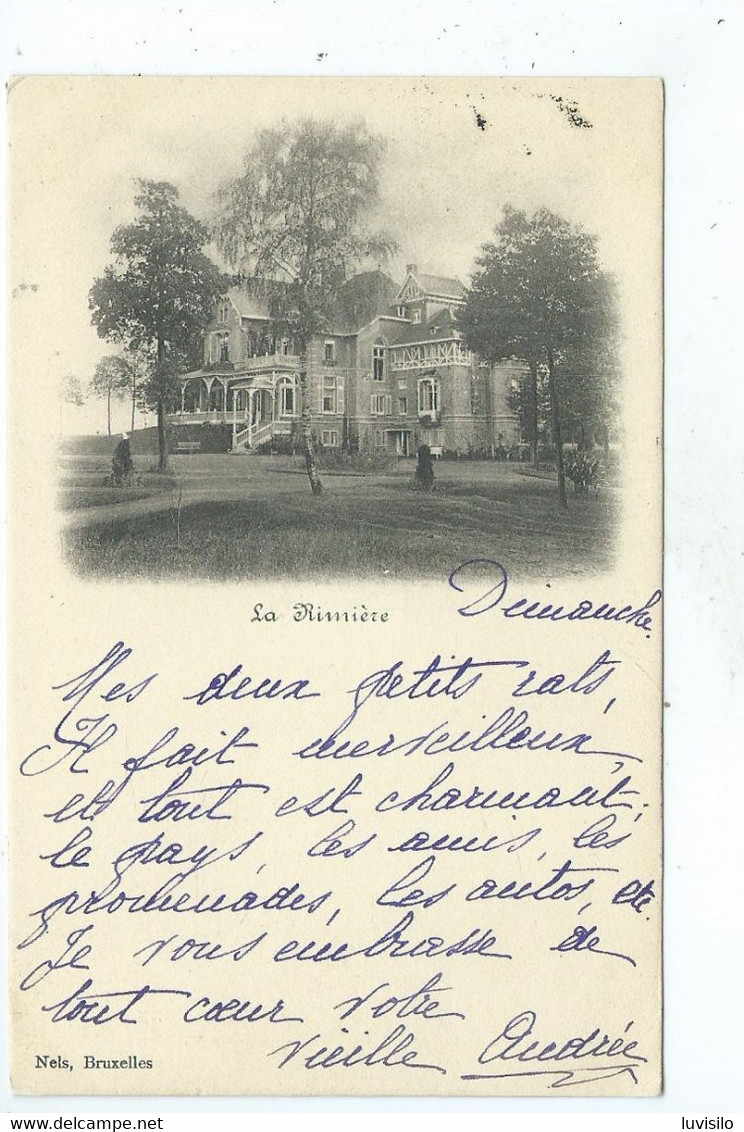 La Rimière
Dimanche.
Mes deux petits rats,
Il fait merveilleux,
et tout est charmant;
le pays, les amis, les
promenades, les autos, etc.
Je vous embrasse de
tout cœur Votre
vieille Andrée
Nels, Bruxelles
luvisilo